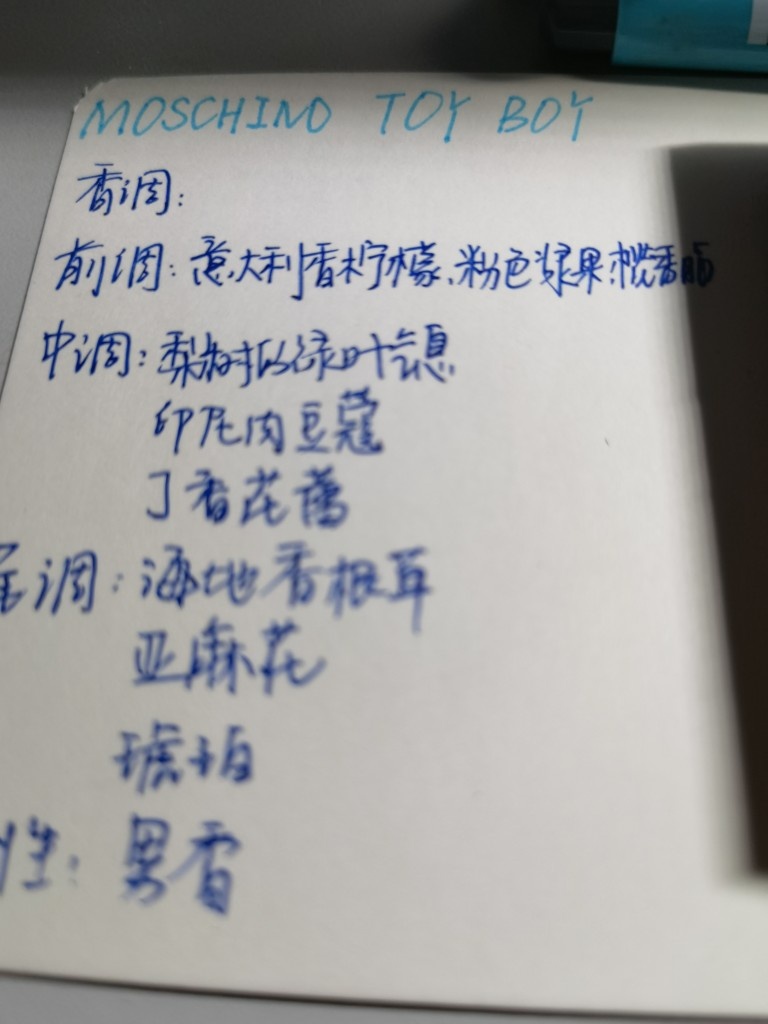 MOSCHINO TOY BOY
香调:
前调:意大利香柠檬、粉色浆果、榄香脂
中调:梨树的绿叶气息
印尼肉豆蔻
丁香花蕾
调:海地香根草
亚麻花
琥珀
性:男香